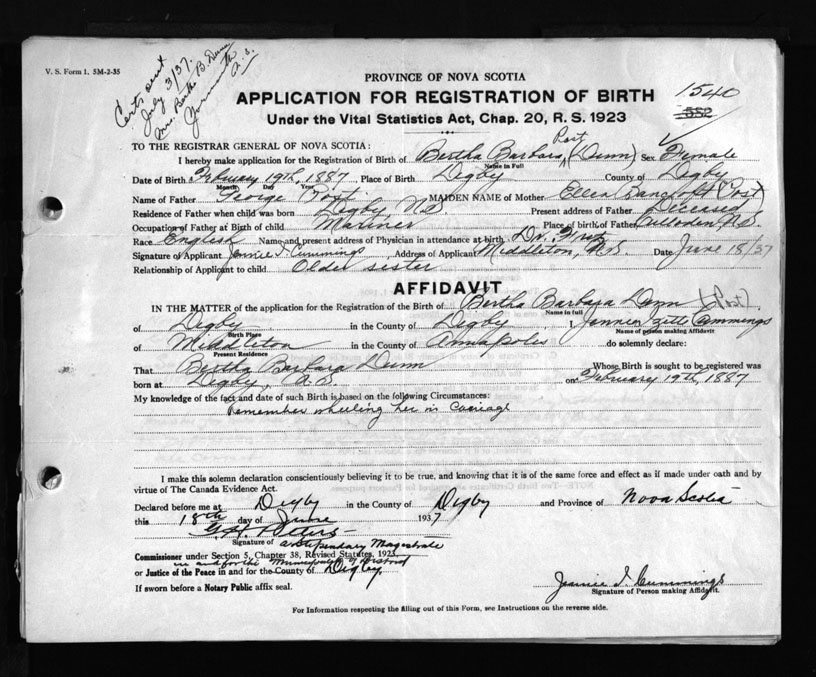 V. S. Form 1. 5M-2-35
Certs sent
July 3/37.
Mrs. Bertha B. Dunn
Yarmouth
N.S.
PROVINCE OF NOVA SCOTIA
APPLICATION FOR REGISTRATION OF BIRTH
1540
552
Under the Vital Statistics Act, Chap. 20, R. S. 1923
TO THE REGISTRAR GENERAL OF NOVA SCOTIA:
Port
I hereby make application for the Registration of Birth of Bertha Barbara (Dunn) Sex Female
Name in Full
Date of Birth February 19th, 1887 Place of Birth Digby County of Digby
Month Day Year
Name of Father George Port MAIDEN NAME of Mother Ellen Bancroft (Post)
Residence of Father when child was born Digby, N.S. Present address of Father Deceased
Occupation of Father at Birth of child Mariner Place of birth of Father Culloden N.S.
Race English Name and present address of Physician in attendance at birth Dr.
Signature of Applicant Jennie I Cummings Address of Applicant Middleton, N.S. Date June 18/37
Relationship of Applicant to child Older sister
AFFIDAVIT
IN THE MATTER of the application for the Registration of the Birth of Bertha Barbara Dunn (Post)
Name in full
of Digby in the County of Digby I, Cummings
Birth Place Name of person making Affidavit
of Middleton in the County of Annapolis do solemnly declare:
Present Residence
That Bertha Barbara Dunn Whose Birth is sought to be registered was
born at Digby, N.S. on February 19th, 1887
My knowledge of the fact and date of such Birth is based on the following Circumstances:
Remember wheeling her in Carriage
I make this solemn declaration conscientiously believing it to be true, and knowing that it is of the same force and effect as if made under oath and by
virtue of The Canada Evidence Act.
Declared before me at Digby in the County of Digby and Province of Nova Scotia
this 18th day of June 1937
Peters
Signature of a Stipendiary Magistrate
Commissioner under Section 5, Chapter 38, Revised Statutes, 1923
in and for the Municipality of District
or Justice of the Peace in and for the County of Digby
If sworn before a Notary Public affix seal.
Jennie I. Cummings
Signature of Person making Affidavit.
For Information respecting the filling out of this Form, see Instructions on the reverse side.